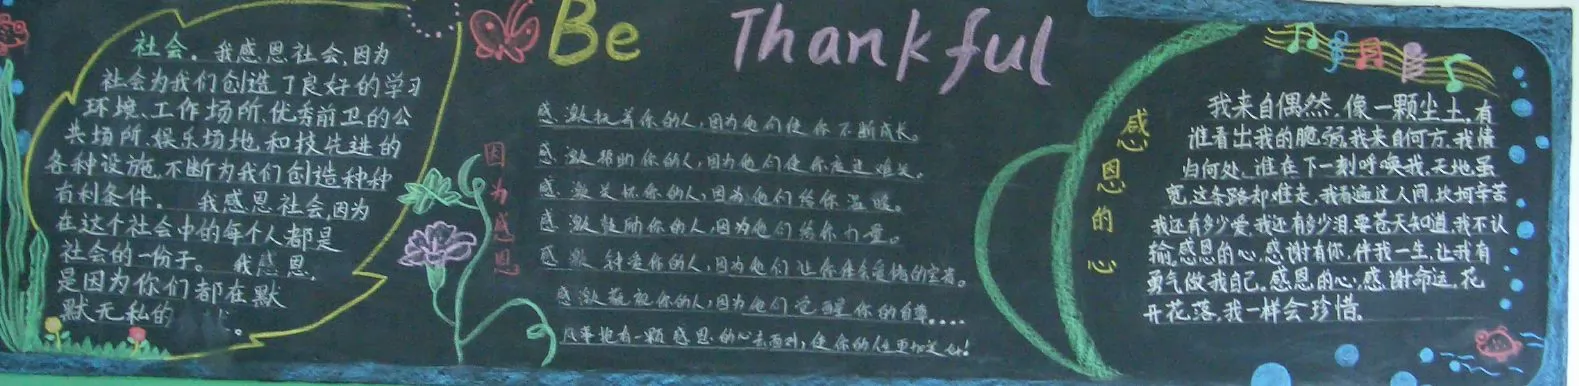 Be Thankful
社会. 我感恩社会,因为
社会为我们创造了良好的学习
环境、工作场所,优秀前卫的公
共场所,娱乐场地,和技先进的
各种设施,不断为我们创造种种
有利条件. 我感恩社会,因为
在这个社会中的每个人都是
社会的一份子。 我感恩,
是因为你们都在默
默无私的 。
因为感恩
感激抚养你的人,因为他们使你不断成长。
感激帮助你的人,因为他们使你度过难关。
感激关怀你的人,因为他们给你温暖。
感激鼓励你的人,因为他们给你力量。
感激钟爱你的人,因为他们让你体会爱情的宝贵。
感激藐视你的人,因为他们觉醒你的自尊....
凡事抱有一颗感恩的心去面对,使你的 更加美好!
感恩的心
我来自偶然,像一颗尘土,有
谁看出我的脆弱,我来自何方,我情
归何处,谁在下一刻呼唤我,天地虽
宽,这条路却难走,我看遍这人间,坎坷辛苦
我还有多少爱,我还有多少泪,要苍天知道,我不认
输,感恩的心,感谢有你,伴我一生,让我有
勇气做我自己,感恩的心,感谢命运,花
开花落,我一样会珍惜.